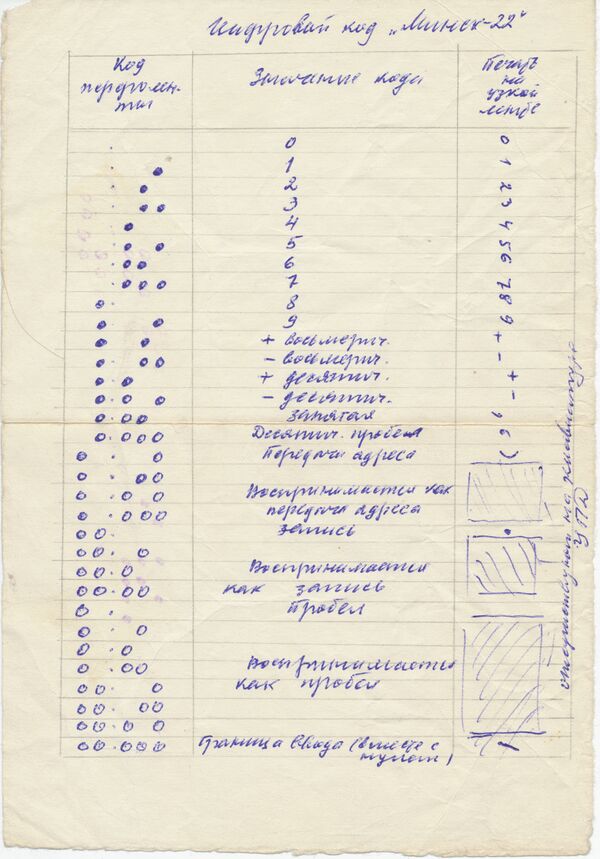 Цифровой код „Минск-22"
Код перфолен-ты Значение кода Печать на узкой ленте
0 0
1 1
2 2
3 3
4 4
5 5
6 6
7 7
8 8
9 9
+ восьмерич. +
- восьмерич. -
+ десятич. +
- десятич. -
запятая ,
Десятич. пробел
Передача адреса )
Воспринимается как
передача адреса
запись
Воспринимается
как запись
пробел
Воспринимается
как пробел
Граница ввода (вместе с
нулем)
отсутствуют на клавиатуре
УПД